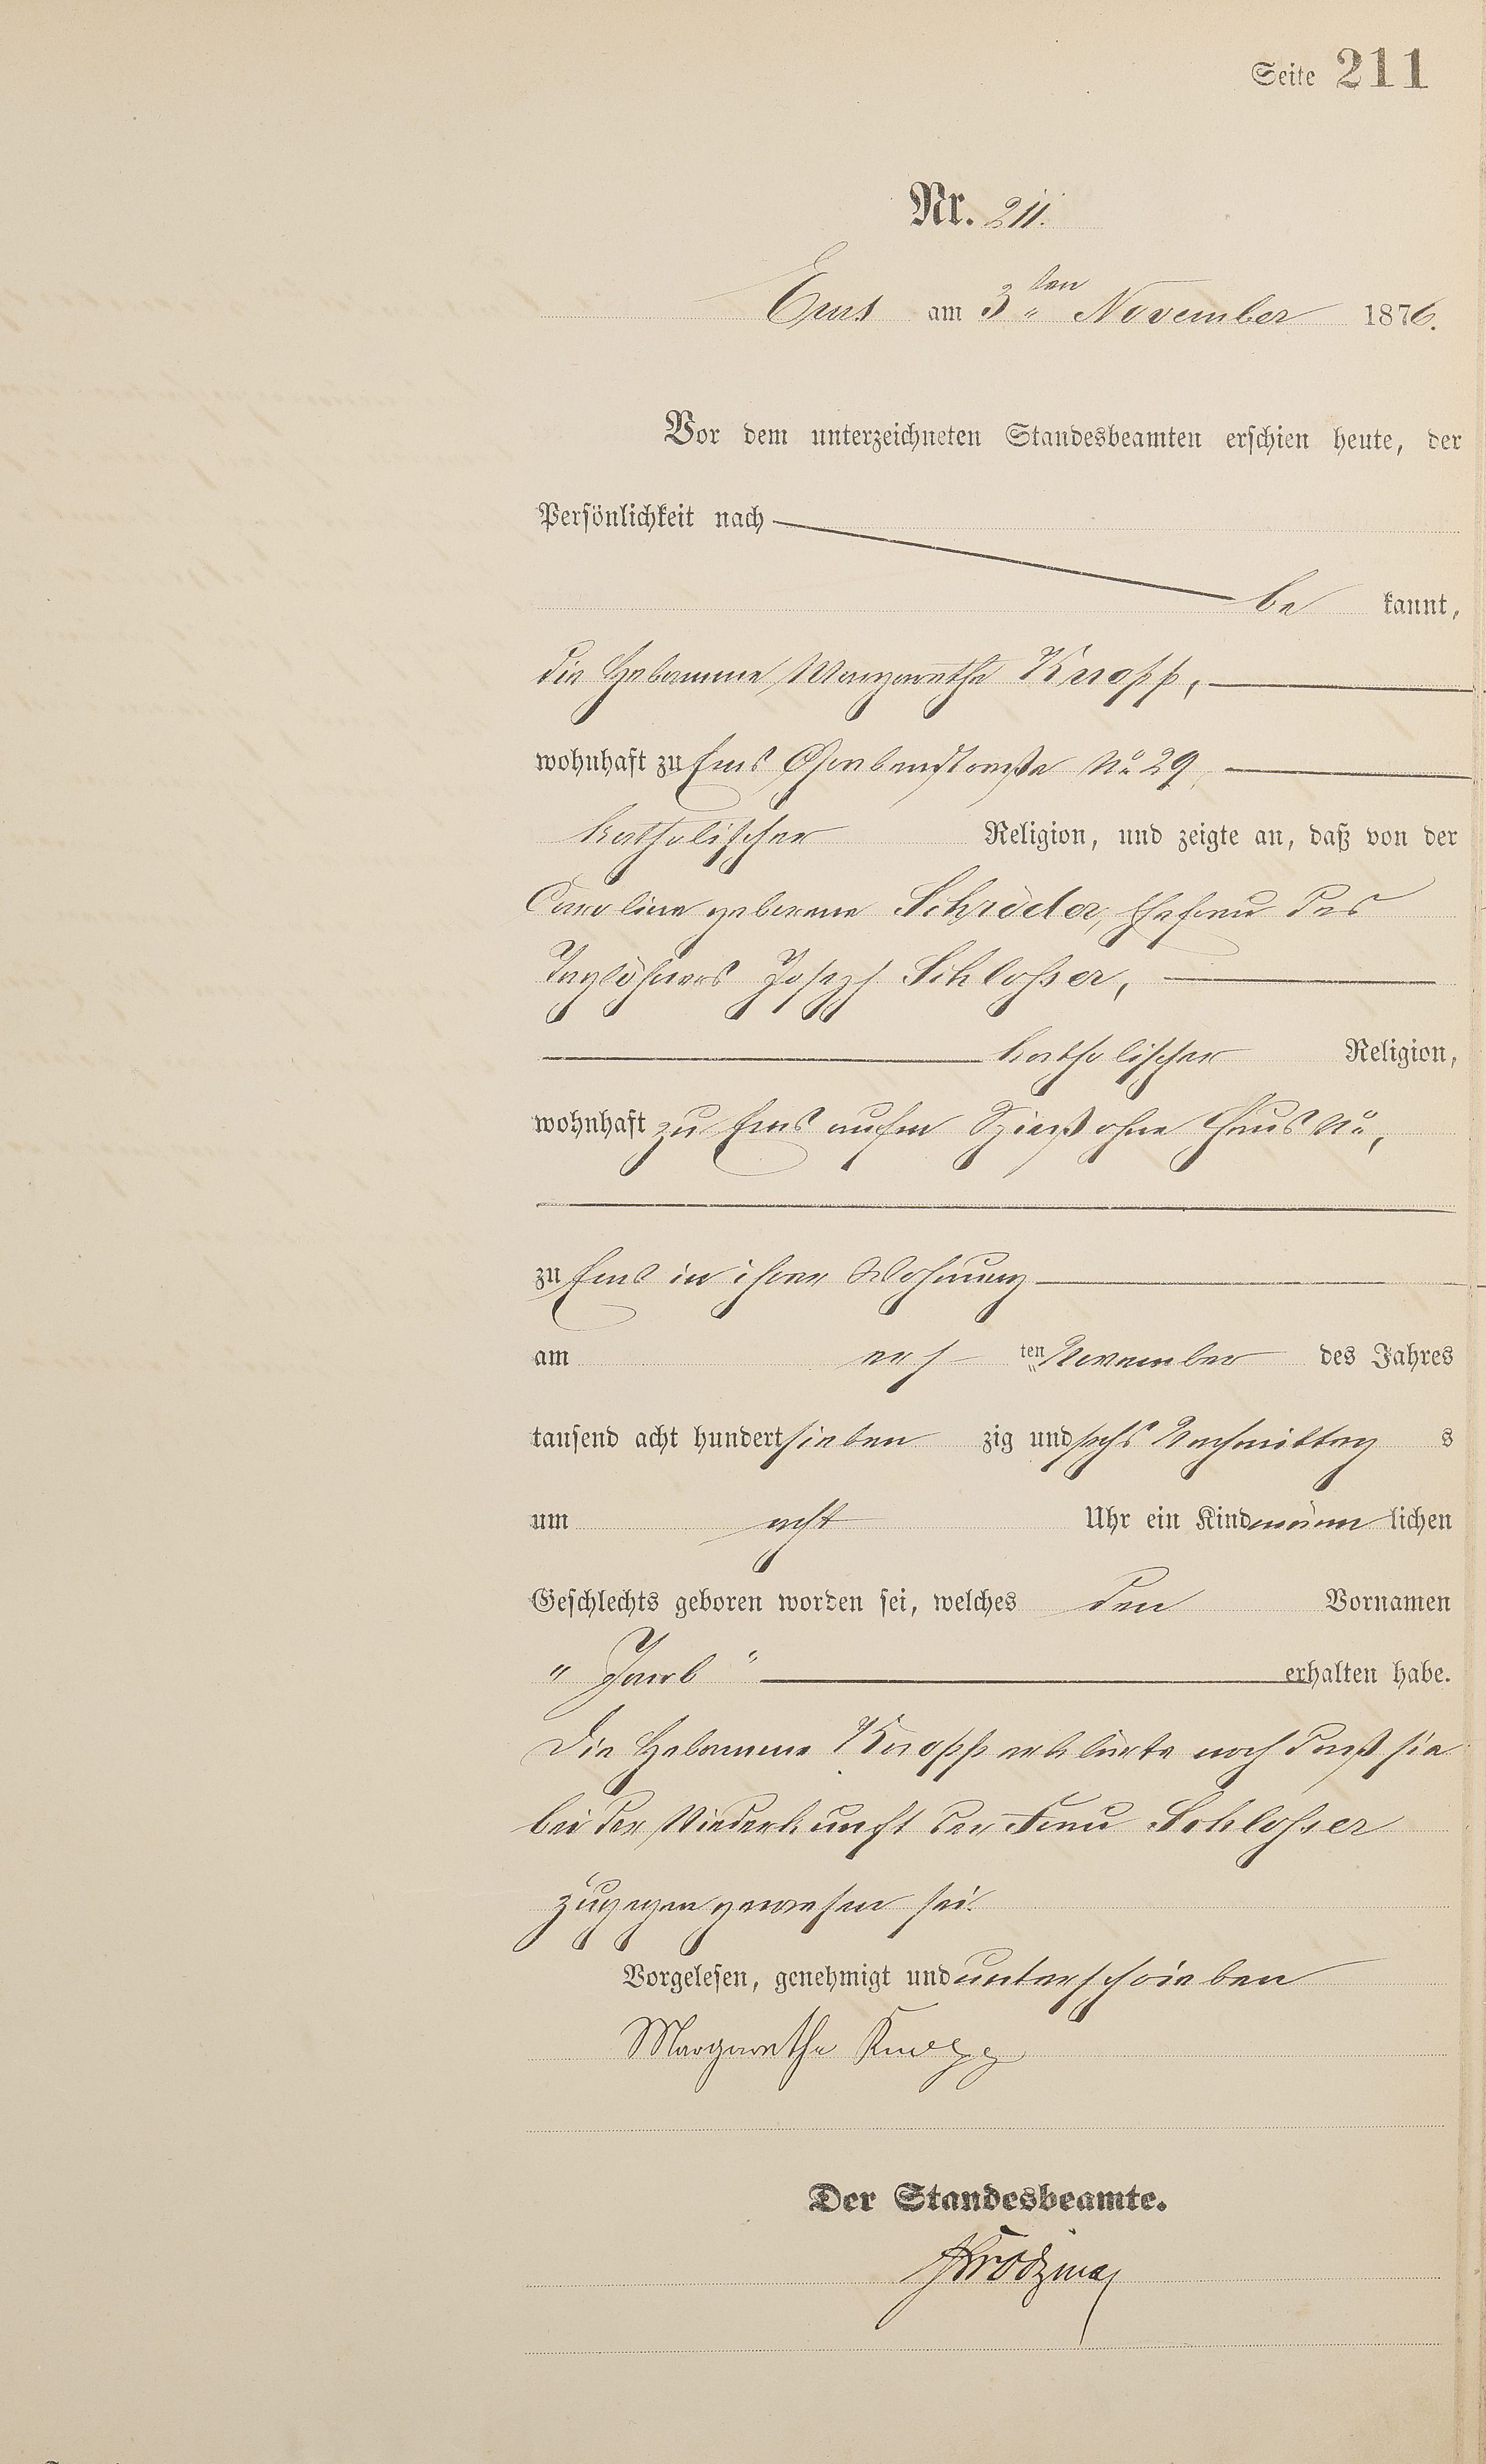 Seite 211
Nr. 211.
Ems am 3ten November 1876.
Vor dem unterzeichneten Standesbeamten erschien heute, der
Persönlichkeit nach
be kannt,
die Hebamme Margarethe Knopp,
wohnhaft zu Ems Grabenstraße No 29,
katholischer Religion, und zeigte an, daß von der
Caroline geborene Schröder, Ehefrau des
Taglöhners Joseph Schlosser,
katholischer Religion,
wohnhaft zu Ems aufm Spieß ohne Haus No,
zu Ems in ihrer Wohnung
am ers ten November des Jahres
tausend acht hundert sieben zig und sechs Nachmittag s
um acht Uhr ein Kind männ lichen
Geschlechts geboren worden sei, welches den Vornamen
" Jacob " erhalten habe.
Die Hebamme Knopp erklärte noch daß sie
bei der Niederkunft der Frau Schlosser
zugegen gewesen sei.
Vorgelesen, genehmigt und unterschrieben
Margarethe Knopp
Der Standesbeamte.